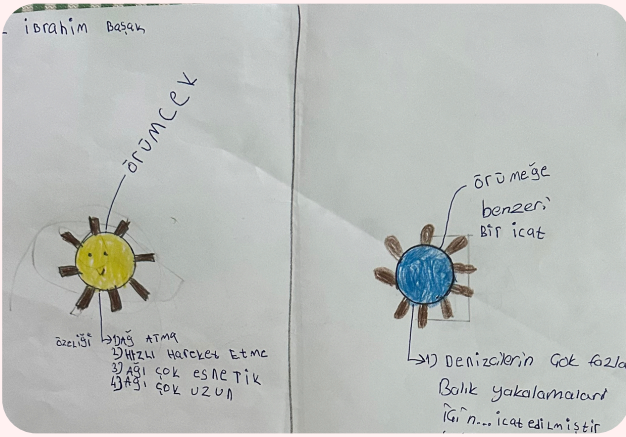 - İBRAHİM BAŞAK
ÖRÜMCEK
ÖZELİĞİ
1) AĞ ATMA
2) HIZLI HAREKET ETME
3) AĞI ÇOK ESNETİK
4) AĞI ÇOK UZUN
ÖRÜMEĞE
benzeri
BİR icat
1) Denizcilerin çok fazla
Balık yakalamaları
İÇİN... icat edilmiştir